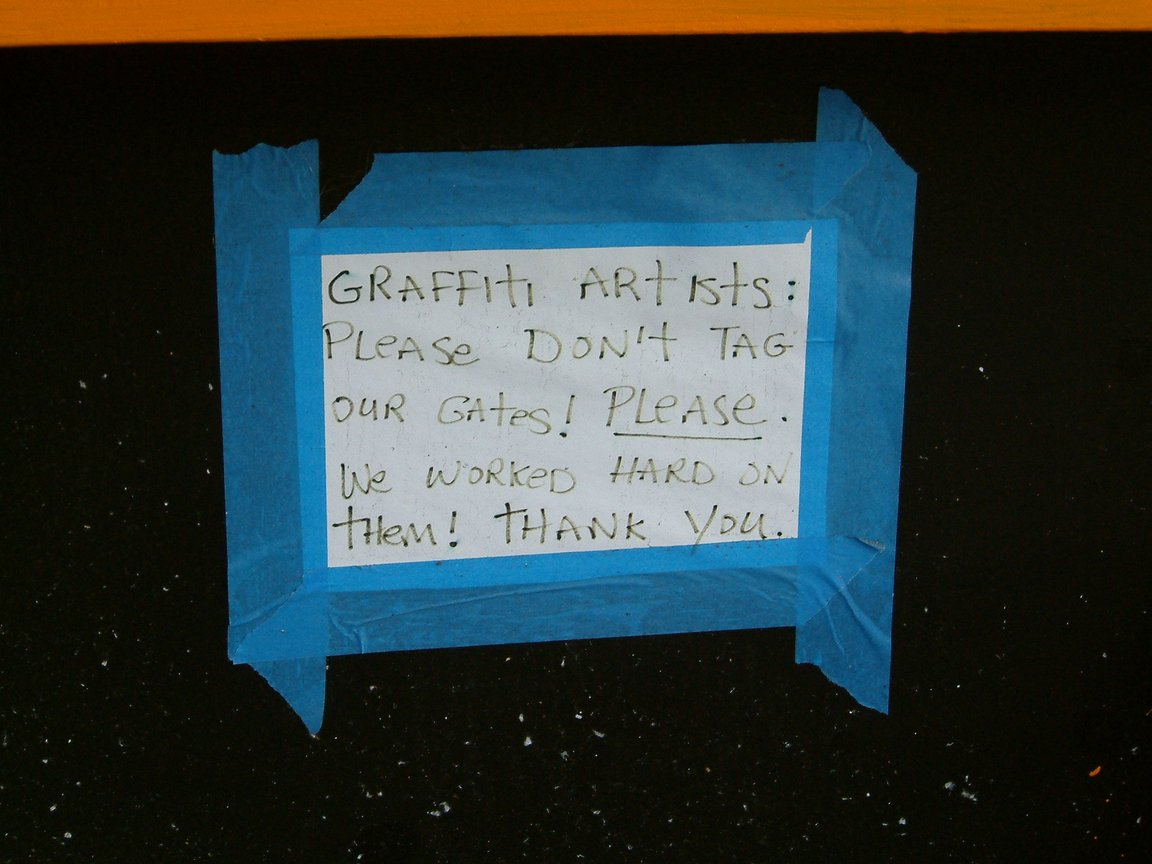 GRAFFiti ARtists:
PLeASe DON't TAG
OUR GAtes! PLeASe.
We WORKeD HARD ON
tHem! tHANK YOU.